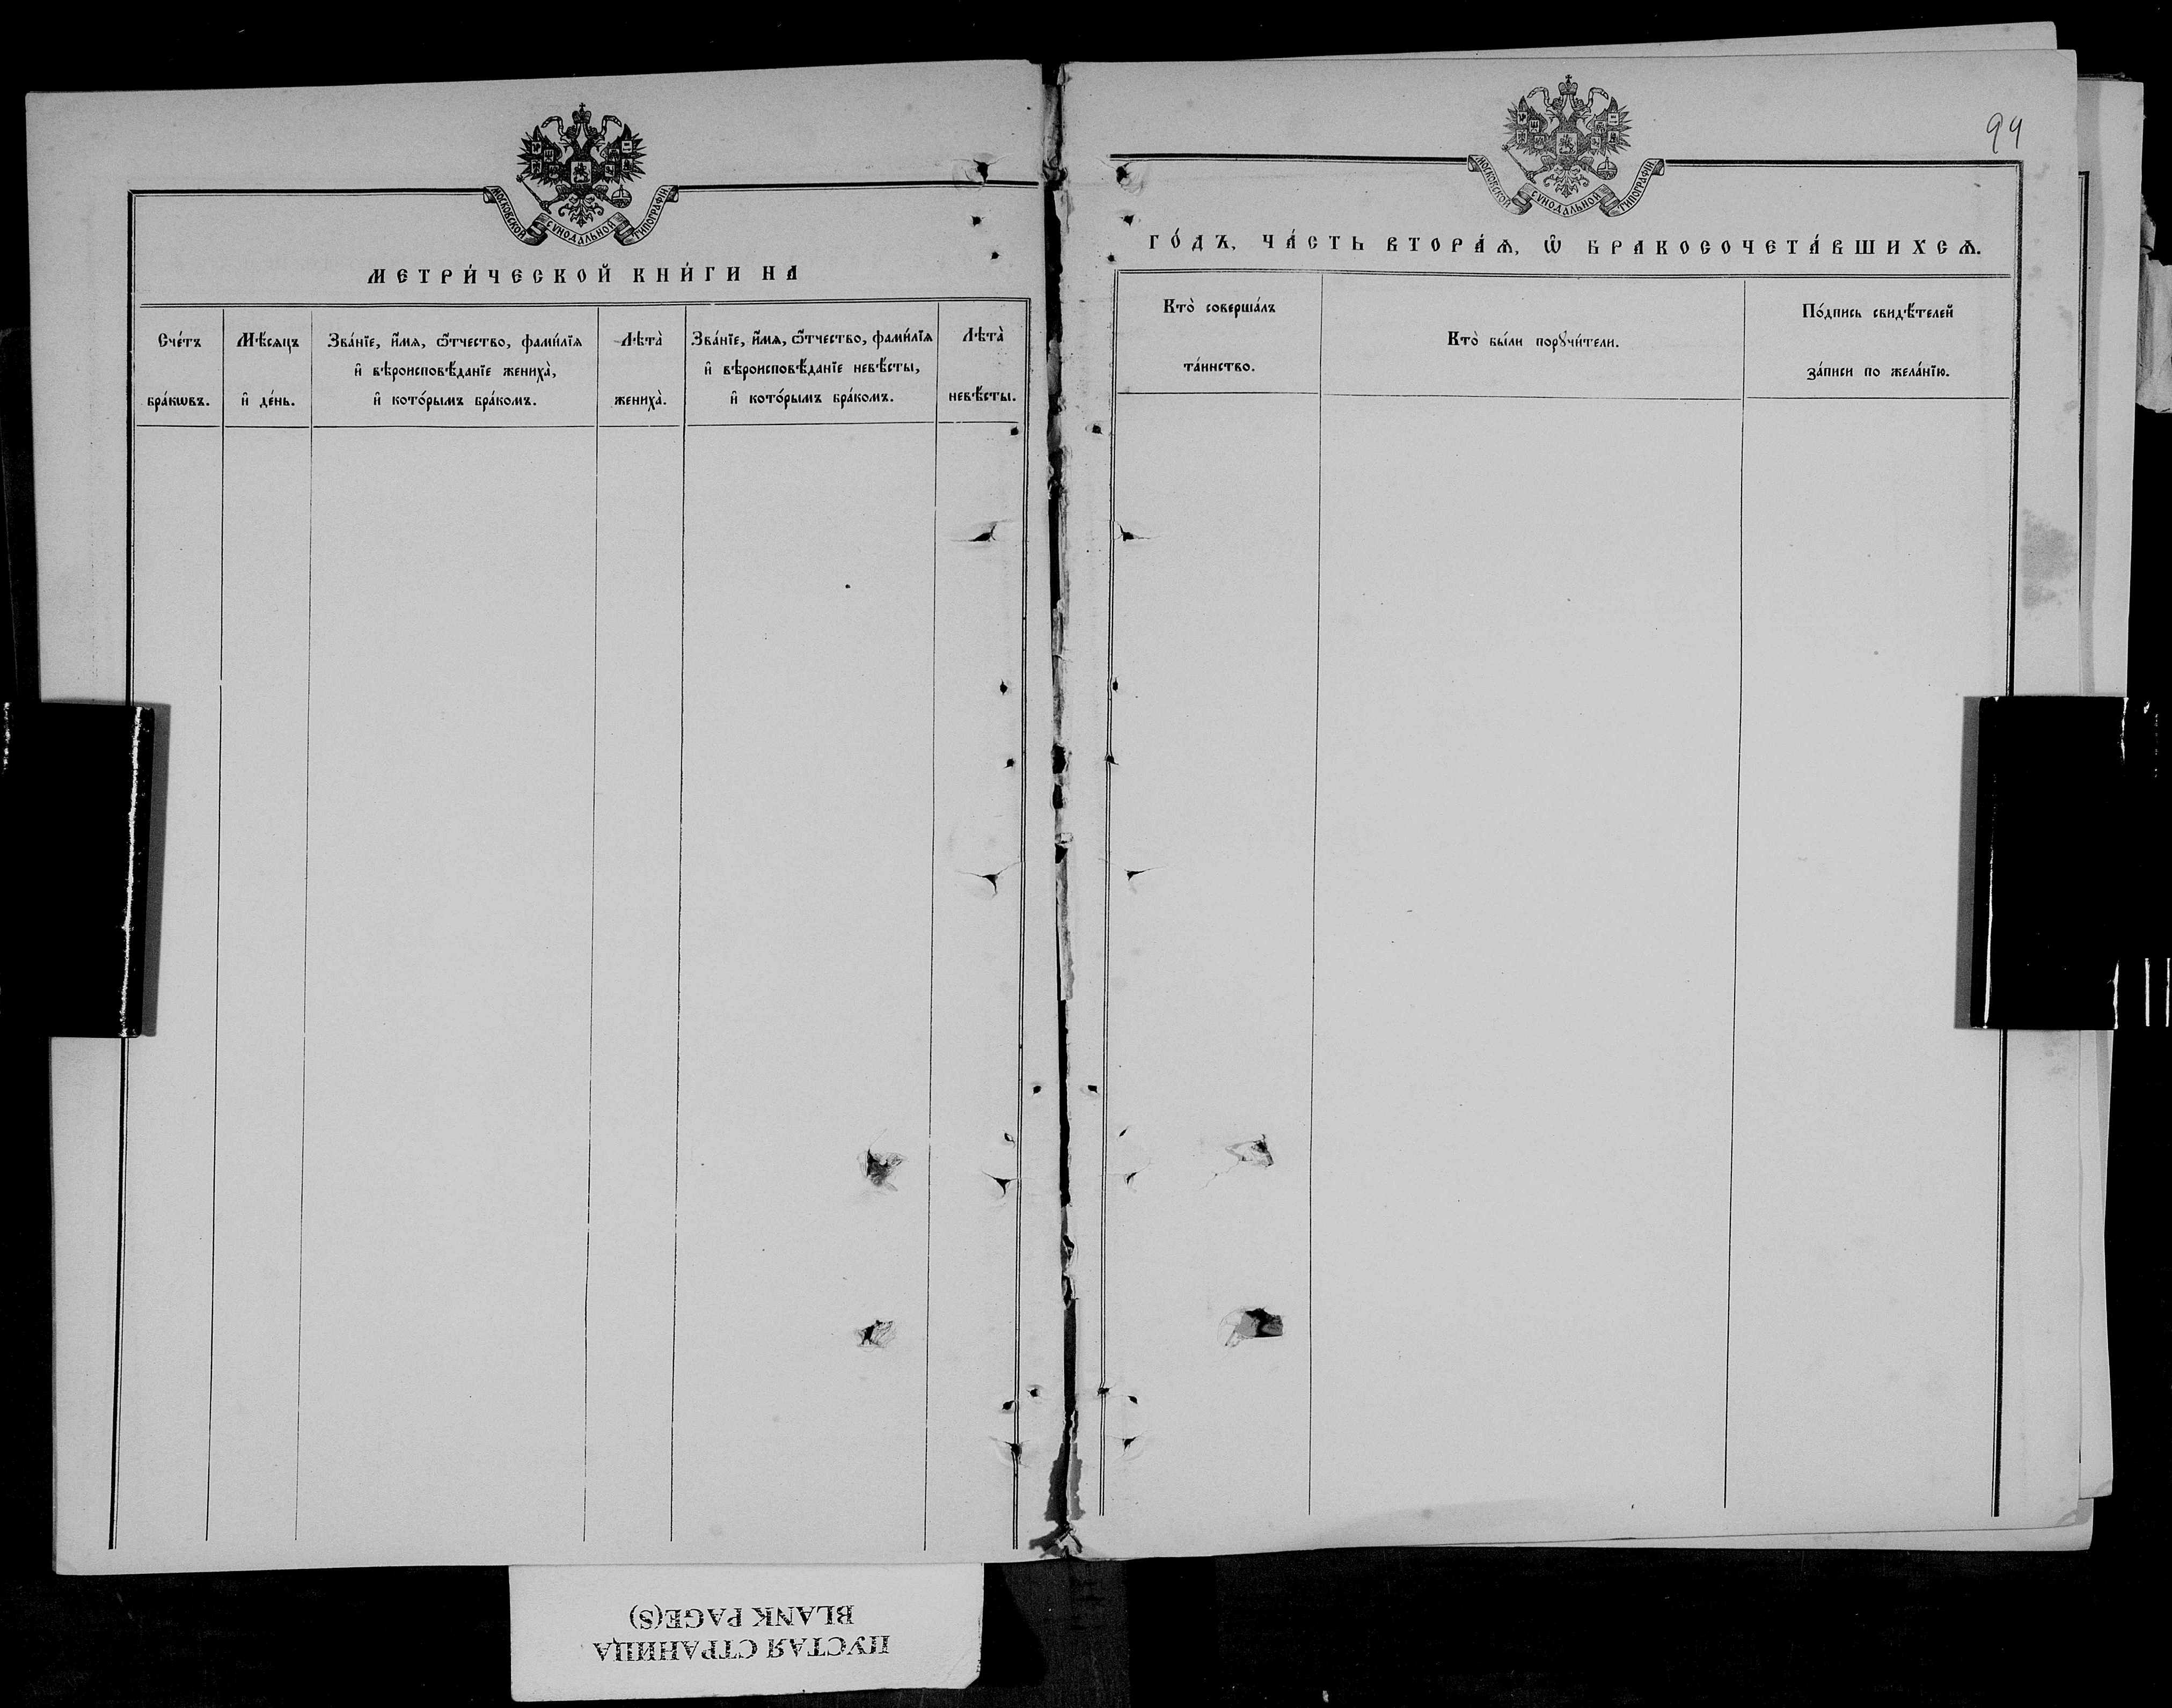 МОСКОВСКОЙ СѴНОДАЛЬНОЙ ТИПОГРАФІИ
МЕТРИ́ЧЕСКОЙ КНИ́ГИ НА
Сче́тъ
бра́кѡвъ.
Мѣ́сяцъ
и҆ де́нь.
Зва́нїе, и҆́мѧ, ѻ҆́тчество, фами́лїѧ
и҆ вѣроисповѣ́данїе жениха̀,
и҆ кото́рымъ бра́комъ.
Лѣта̀
жениха̀.
Зва́нїе, и҆́мѧ, ѻ҆́тчество, фами́лїѧ
и҆ вѣроисповѣ́данїе невѣ́сты,
и҆ кото́рымъ бра́комъ.
Лѣта̀
невѣ́сты.
94
МОСКОВСКОЙ СѴНОДАЛЬНОЙ ТИПОГРАФІИ
ГО́ДЪ, ЧА́СТЬ ВТОРА́Ѧ, Ѡ҆ БРАКОСОЧЕТА́ВШИХСѦ.
Кто̀ соверша́лъ
та́инство.
Кто̀ бы́ли порꙋчи́тели.
По́дпись свидѣ́телей
за́писи по жела́нїю.
ПУСТАЯ СТРАНИЦА
BLANK PAGE(S)